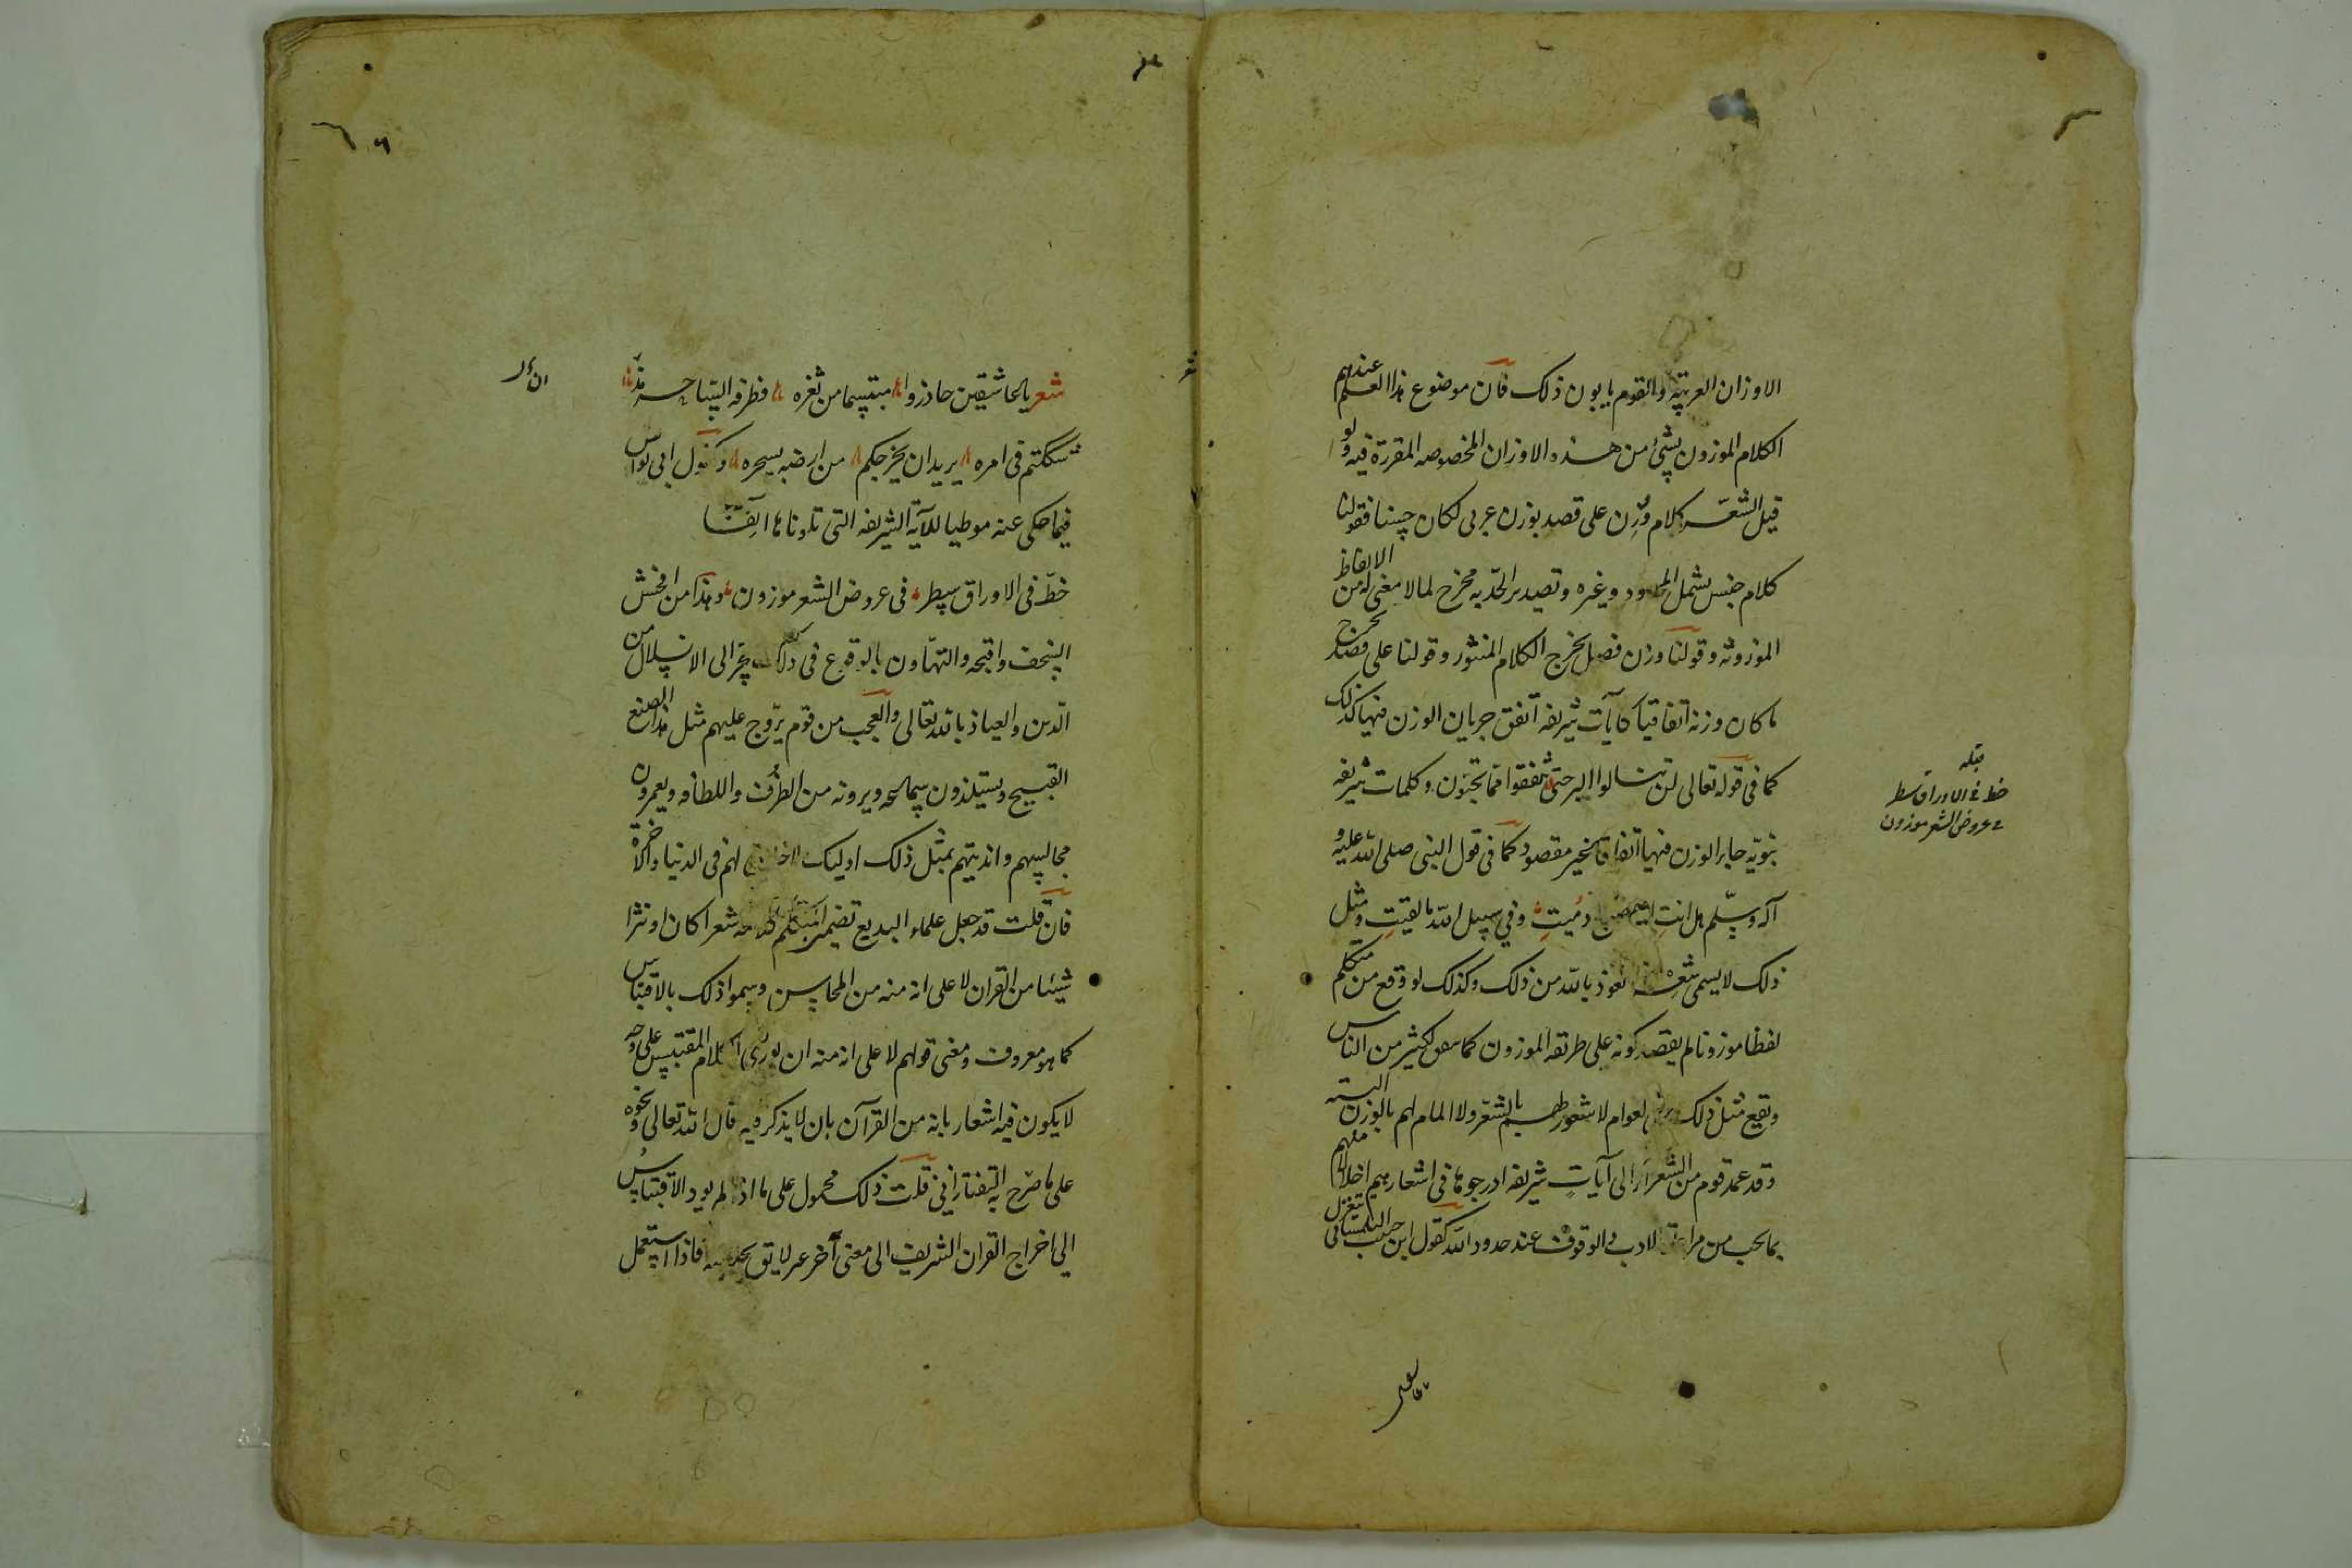 الاوزان العربية والقوم يابون ذلك فان موضوع هذا العلم عندهم
الكلام الموزون بشئ من هذه الاوزان المخصوصه المقررة فيه ولو
قيل الشعر كلام وزن على قصد بوزن عربى لكان حسنا فقولنا
كلام جنس يشمل المحدود وغيره وتصدير الحد به مخرج لما لا معنى له من الالفاظ
الموزونه وقولنا وزن فصل يخرج الكلام المنثور وقولنا على قصد يخرج
ما كان وزنه اتفاقيا كايات شريفه اتفق جريان الوزن فيها كذلك
كما فى قوله تعالى لن تنالوا البر حتى تنفقوا مما تحبون وكلمات شريفه
نبويه جاء الوزن فيها اتفاقا غير مقصود كما فى قول النبى صلى الله عليه و
آله وسلم هل انت الا اصبع دميت وفي سبيل الله ما لقيت ومثل
ذلك لا يسمى شعرا نعوذ بالله من ذلك وكذلك لو وقع من متكلم
لفظا موزونا لم يقصد كونه على طريقه الموزون كما يتفق لكثير من الناس
ويقع مثل ذلك لعوام لا شعور لهم بالشعر ولا المام لهم بالوزن البتة
وقد عمد قوم من الشعراء الى آيات شريفه ادرجوها فى اشعارهم اخلالا منهم
بما يجب من مراعاة الادب والوقوف عند حدود الله كقول ابن التلمسانى يتغزل
قبله
خط فى الاوراق سطر
فى عروض الشعر موزون
شعر يا عاشقين حاذروا مبتسما من ثغره فطرفه الساحر مذ
شككتم فى امره يريد ان يخرجكم من ارضه بسحره وكقول ابى نواس
فيما حكى عنه موطيا للآية الشريفه التى تلوناها آنفا
خط فى الاوراق سطر فى عروض الشعر موزون وهذا من افحش
السخف واقبحه والتهاون بالوقوع فى ذلك يجر الى الانسلال من
الدين والعياذ بالله تعالى والعجب من قوم يروج عليهم مثل هذا الصنع
القبيح ويستلذون سماعه ويرونه من الظرف واللطافه ويعمرون
مجالسهم وانديتهم بمثل ذلك اوليك لا خلاق لهم فى الدنيا والآخرة
فان قلت قد جعل علماء البديع تضمين المتكلم كلامه شعرا كان او نثرا
شيئا من القران لا على انه منه من المحاسن وسموا ذلك بالاقتباس
كما هو معروف ومعنى قولهم لا على انه منه ان يورد الكلام المقتبس على وجه
لا يكون فيه اشعار بانه من القرآن بان لا يذكر فيه قال الله تعالى ونحوه
على ما صرح به التفتازانى قلت ذلك محمول على ما اذا لم يود الاقتباس
الى اخراج القران الشريف الى معنى آخر غير لايق فاذا استعمل